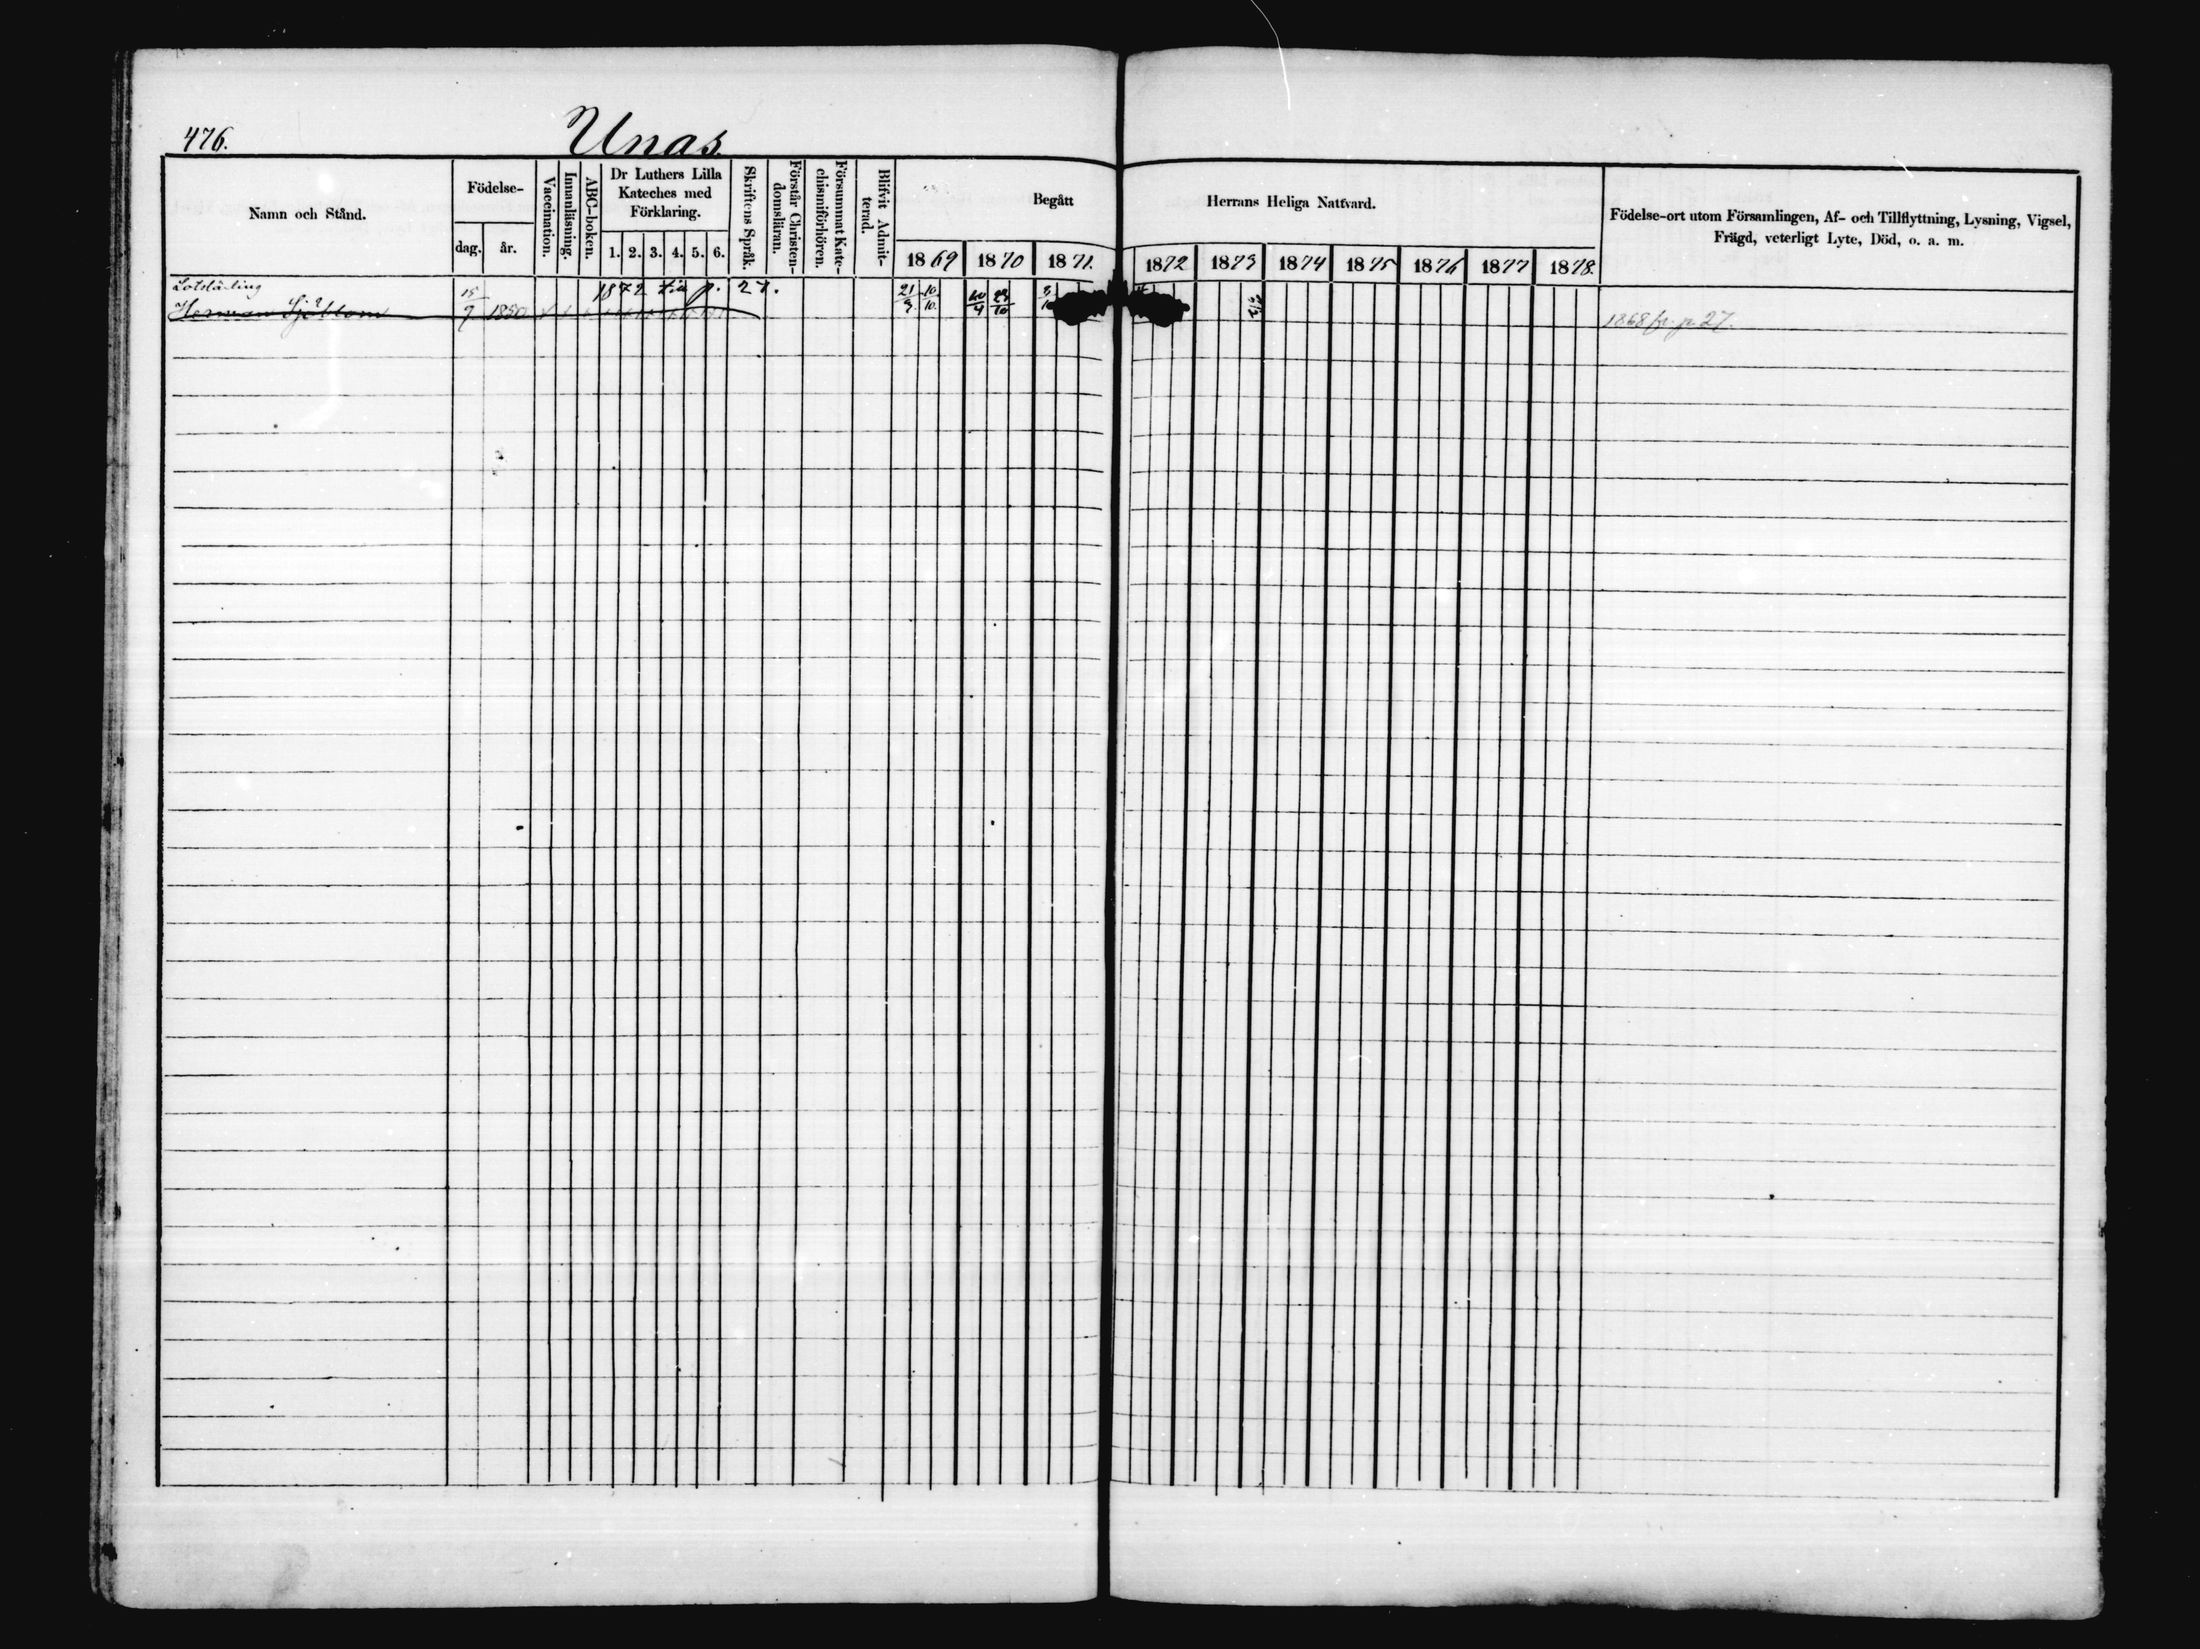 476. Unas.
Namn och Stånd.
Födelse-
dag. år.
Vaccination.
Innanläsning.
ABC-boken.
Dr Luthers Lilla
Kateches med
Förklaring.
1. 2. 3. 4. 5. 6.
Skriftens Språk.
Förstår Christen-
domsläran.
Försummat Kate-
chismiförhören.
Blifvit Admit-
terad.
Begått Herrans Heliga Nattvard.
1869 1870 1871. 1872 1873 1874 1875 1876 1877 1878.
Födelse-ort utom Församlingen, Af- och Tillflyttning, Lysning, Vigsel,
Frägd, veterligt Lyte, Död, o. a. m.
Lotslärling
1872 till p. 27.
Herman Sjöblom 15/7 1850
21/3 10/10 20/4 29/10
1868 fr. p. 27.